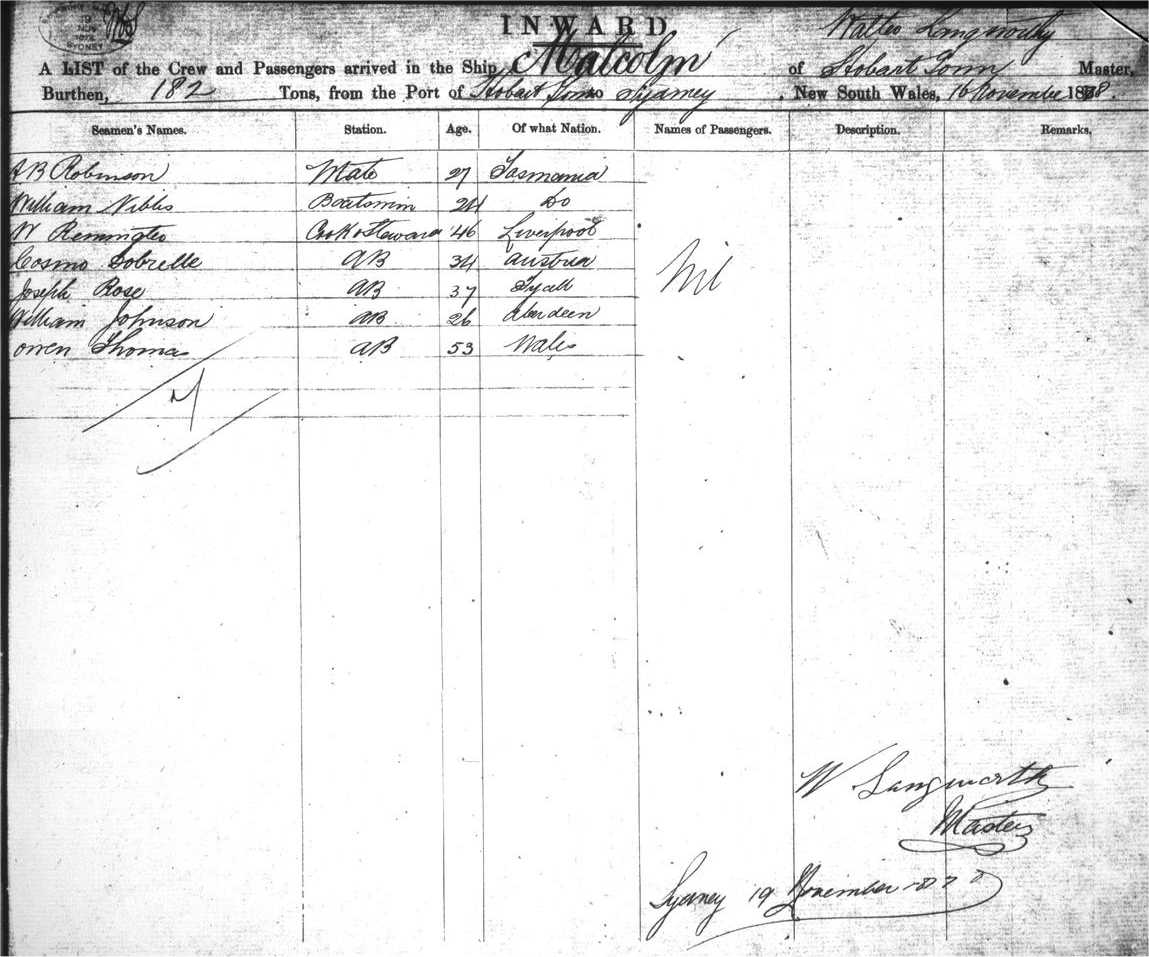 SYDNEY
INWARD
Walter Langworthy
A LIST of the Crew and Passengers arrived in the Ship Malcolm of Hobart Town Master,
Burthen, 182 Tons, from the Port of Hobart Town to Sydney, New South Wales, 16 November 1878.
Seamen's Names. Station. Age. Of what Nation. Names of Passengers. Description. Remarks.
A B Robinson Mate 27 Tasmania
William Nibbs Boatsmin 24 Do
W Remmington Cook & Steward 46 Liverpool
Cosmo AB 34 Austria
Joseph Rose AB 37 Fyall
Nil
William Johnson AB 26 Aberdeen
Owen Thomas AB 53 Wales
W Langworthy
Master
Sydney 19 November 1878